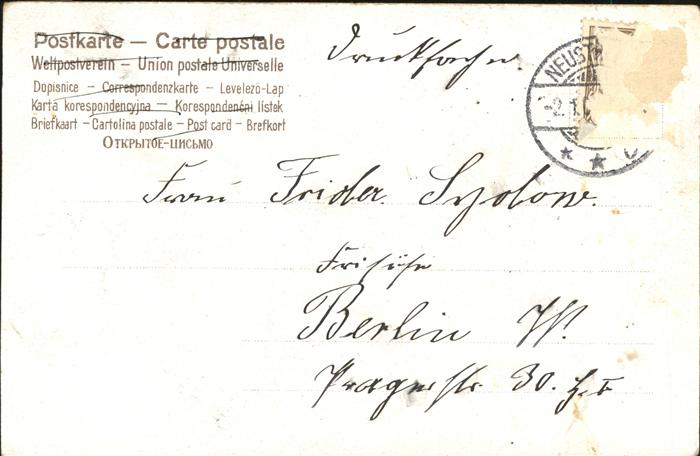 Postkarte — Carte postale
Weltpostverein — Union postale Universelle
Dopisnice — Correspondenzkarte — Levelező-Lap
Karta korespondencyjna — Korespondenční lístek
Briefkaart — Cartolina postale — Post card — Brefkort
Открытое-письмо
Drucksache.
NEUST
-2.1
Frau Frider. Sydow.
Berlin W.
Pragerstr. 30.